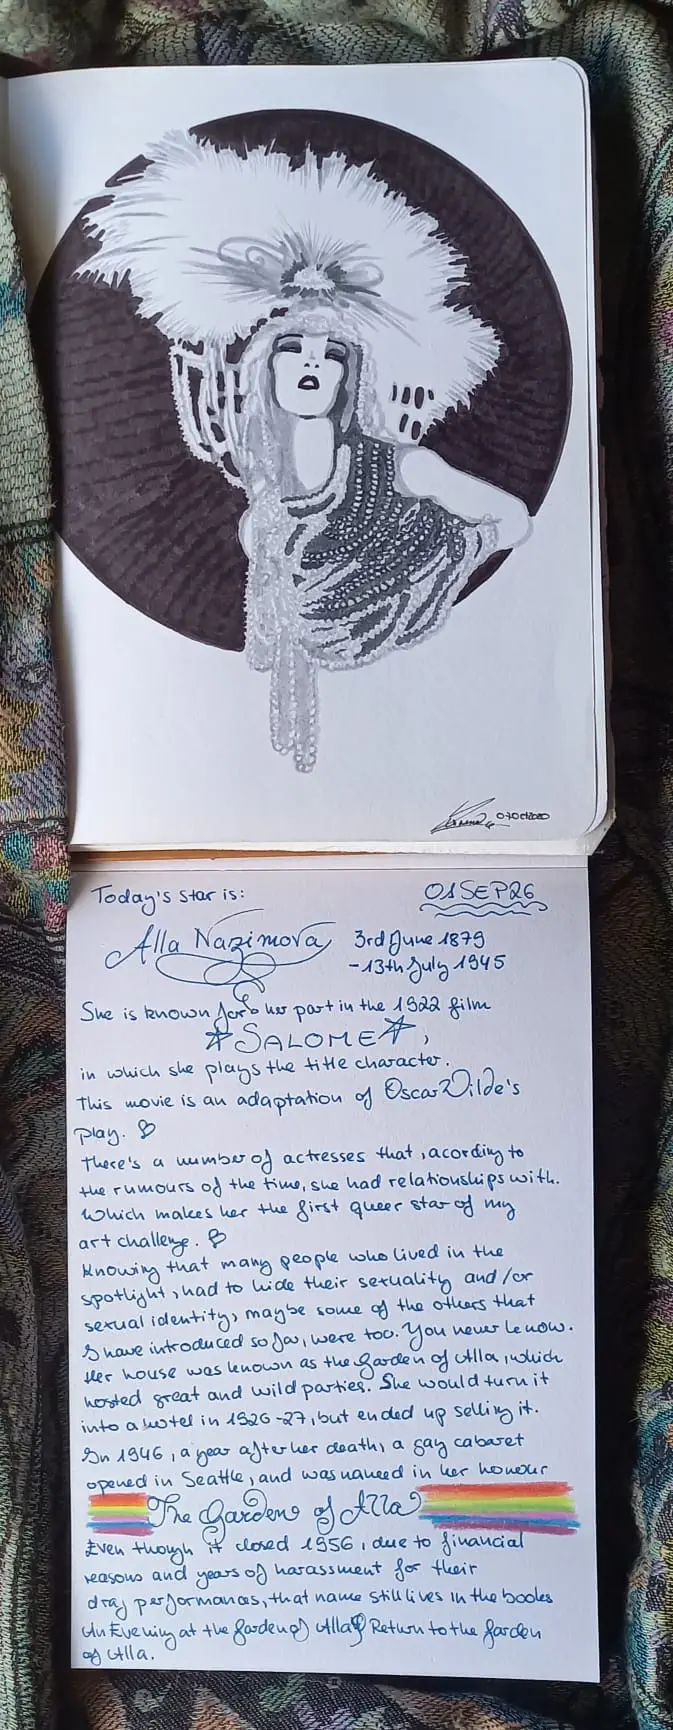 07Oct2020
Today's star is:
01SEP26
Alla Nazimova
3rd June 1879
-13th July 1945
She is known for her part in the 1922 film
SALOME,
in which she plays the title character.
This movie is an adaptation of Oscar Wilde's
play.
There's a number of actresses that, acording to
the rumours of the time, she had relationships with.
Which makes her the first queer star of my
art challenge.
Knowing that many people who lived in the
spotlight, had to hide their sexuality and/or
sexual identity, maybe some of the others that
I have introduced so far, were too. You never know.
Her house was known as the Garden of Alla, which
hosted great and wild parties. She would turn it
into a hotel in 1926-27, but ended up selling it.
In 1946, a year after her death, a gay cabaret
opened in Seattle, and was named in her honour
The Garden of Alla
Even though it closed 1956, due to financial
reasons and years of harassment for their
drag performances, that name still lives in the books
An Evening at the Garden of Alla & Return to the Garden
of Alla.